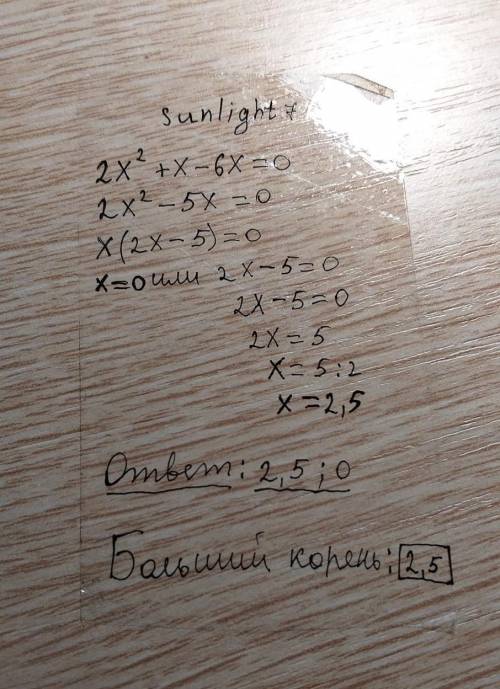 sunlight 7
2x² + x - 6x = 0
2x² - 5x = 0
x(2x - 5) = 0
x=0 или 2x - 5 = 0
2x - 5 = 0
2x = 5
x = 5 : 2
x = 2,5
Ответ: 2,5 ; 0
Больший корень: 2,5